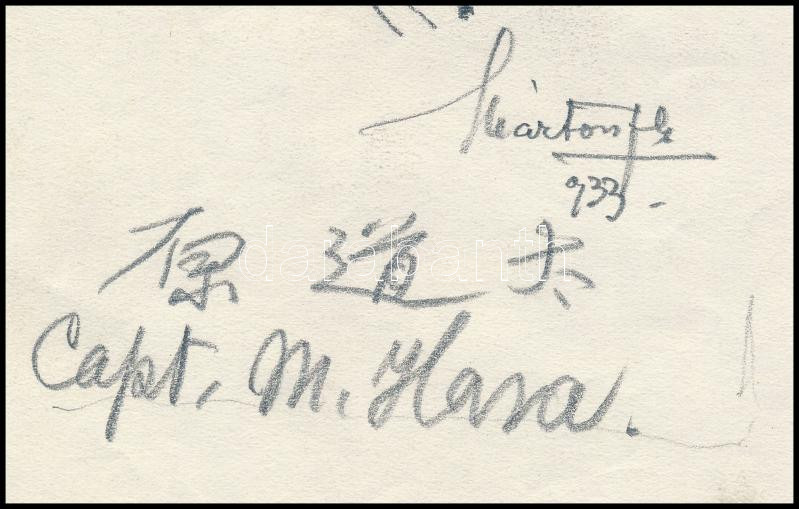 Márton
933.
原 道 太
darabanth
Capt. M. Hara.